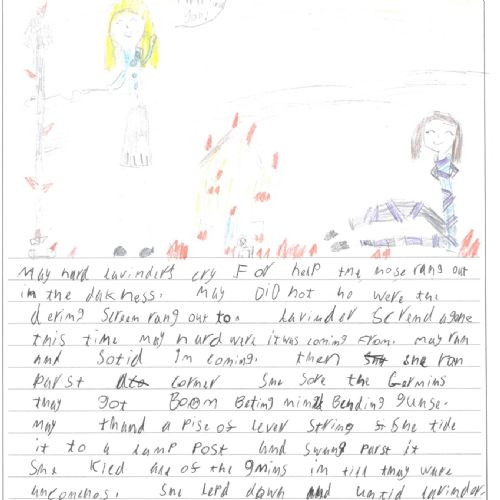 you!
May hard Lavinders cry For help the nose rang out
in the dakness. May DiD not no were the
dering Screen rang out to. Lavinder Scremd agane
this time may hard were it was coming From. may ran
and Sotid Im coming. then she ran
parst a corner She Sore the Germins
thay got BOOM Beting mind Bending gunse.
May thand a pise of lever String She tide
it to a lamp Post and Swung parst it
She Kied all of the gmins in till thay were
unconchos. She lepd down and untid lavinder